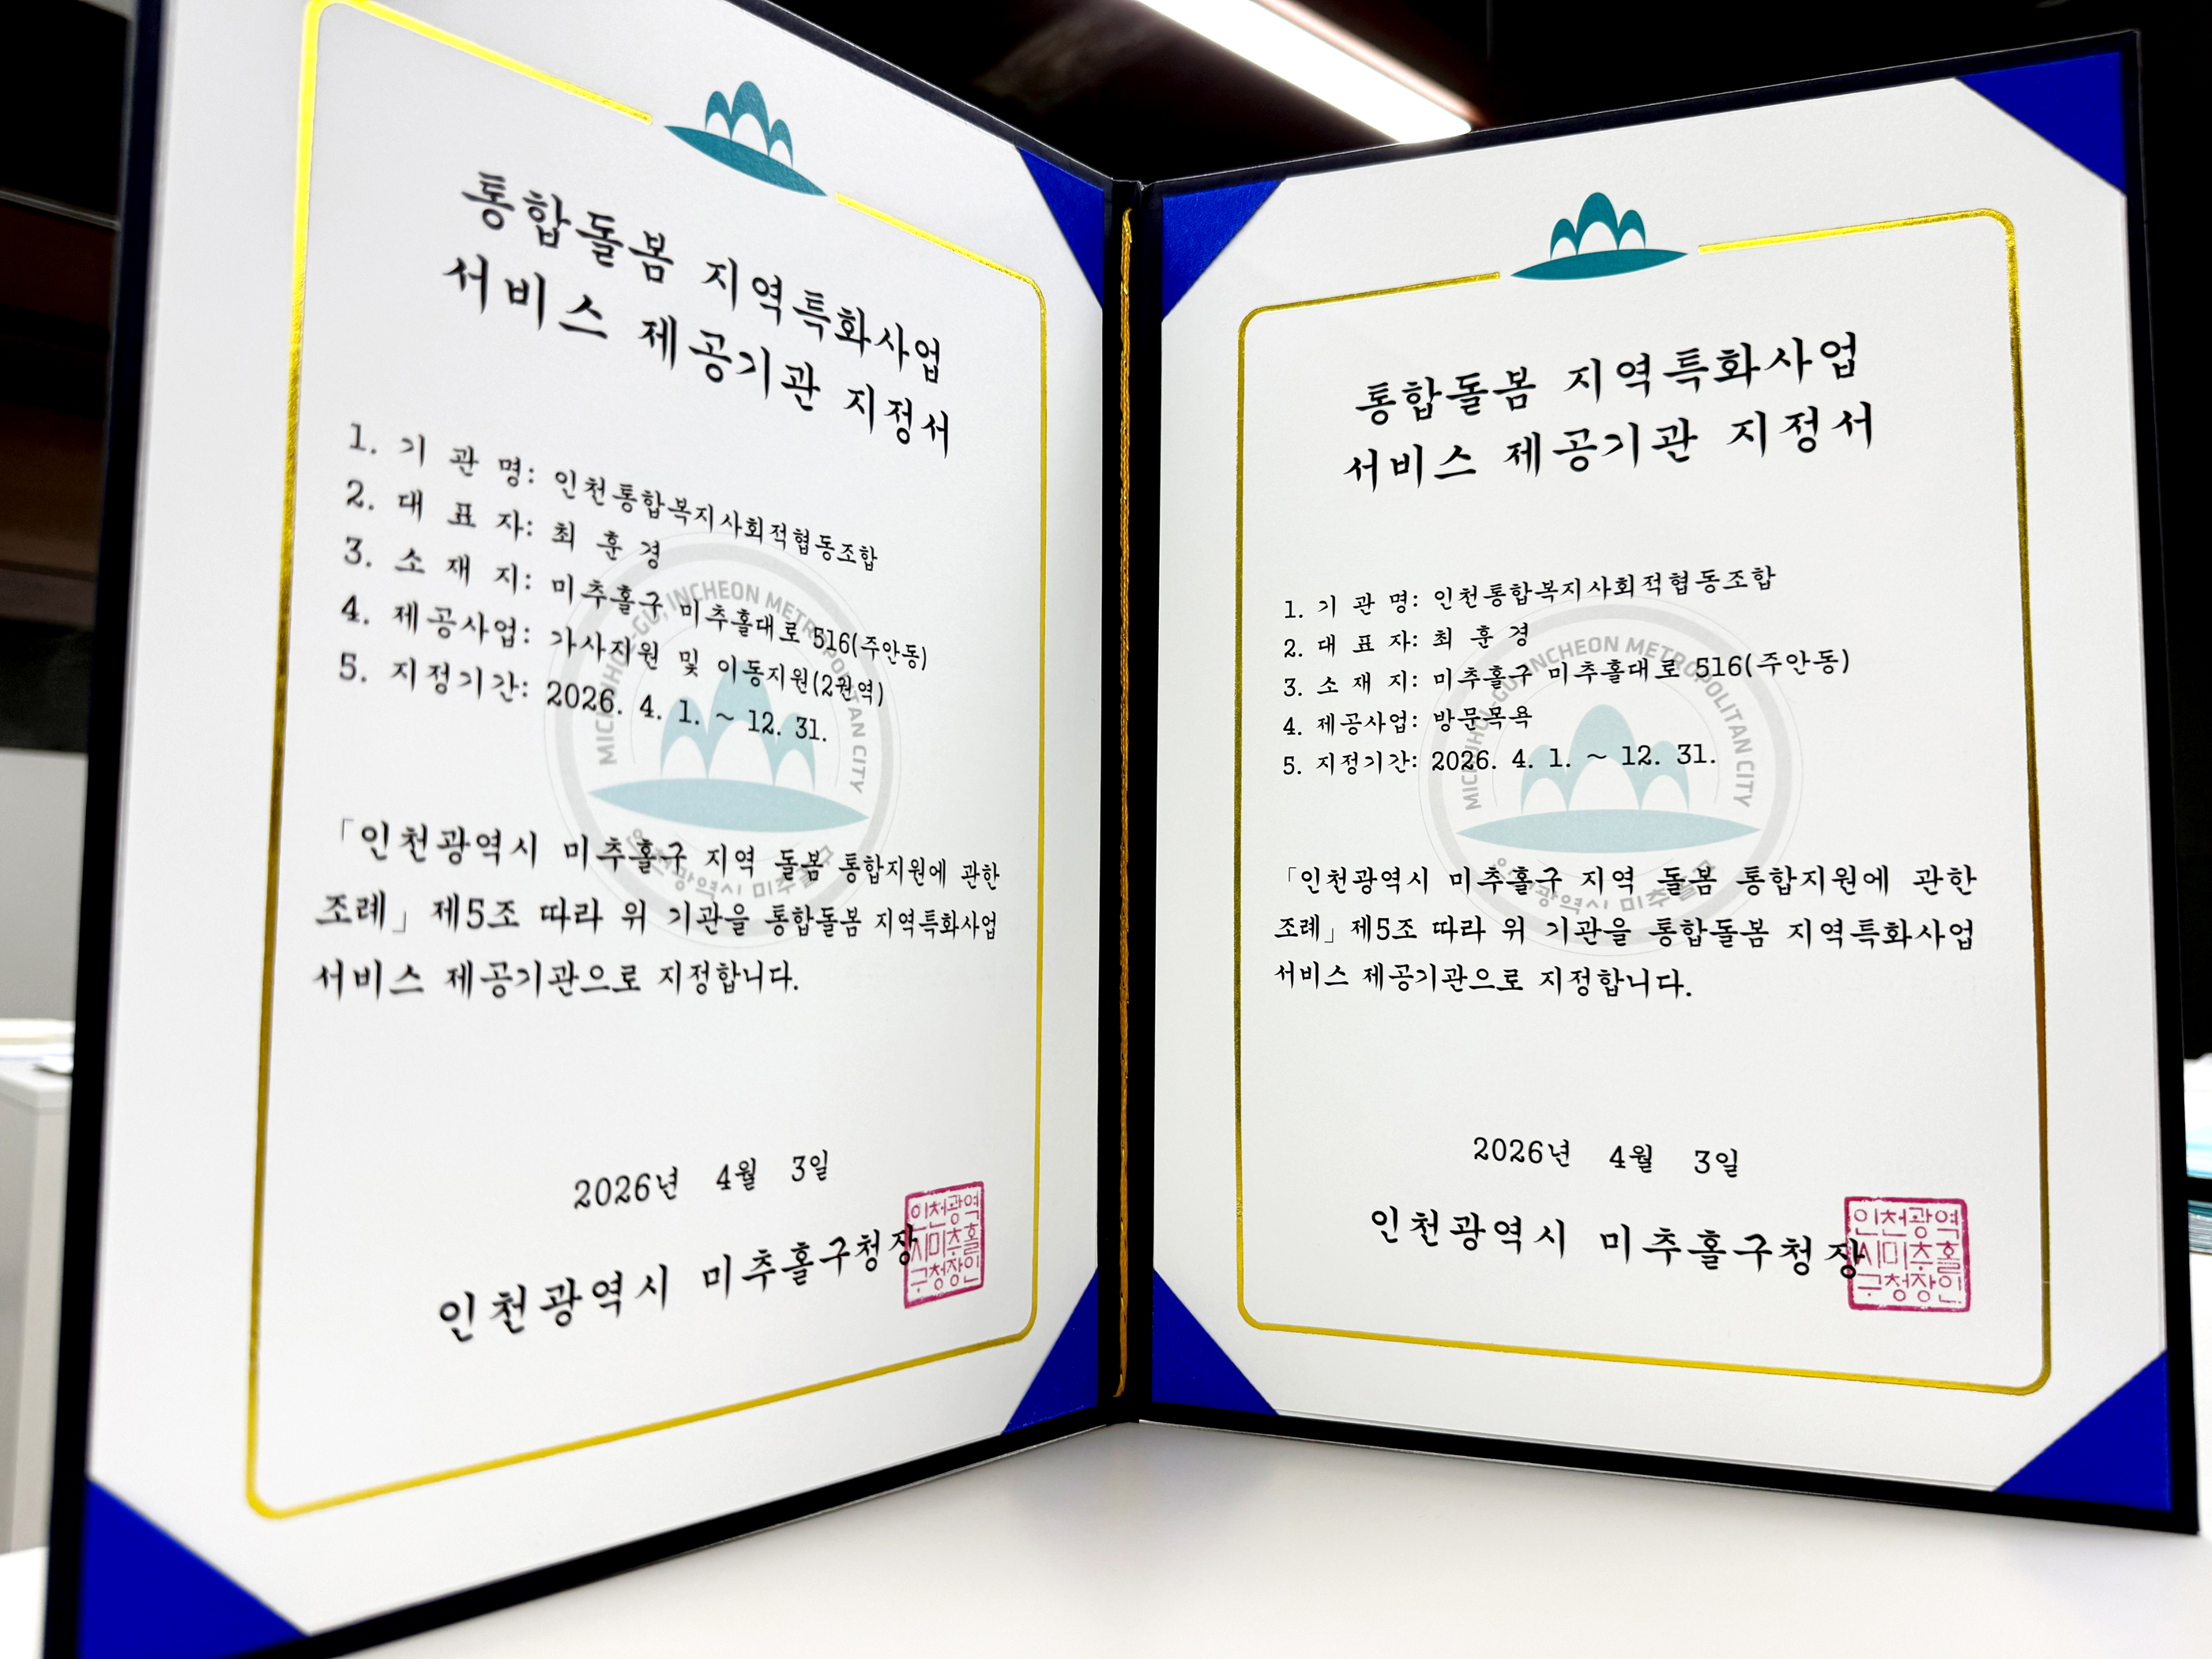 통합돌봄 지역특화사업
서비스 제공기관 지정서
1. 기 관 명: 인천통합복지사회적협동조합
2. 대 표 자: 최 훈 경
3. 소 재 지: 미추홀구 미추홀대로 516(주안동)
4. 제공사업: 가사지원 및 이동지원(2권역)
5. 지정기간: 2026. 4. 1. ~ 12. 31.
MICHUHOL-GU, INCHEON METROPOLITAN CITY
인천광역시 미추홀구
「인천광역시 미추홀구 지역 돌봄 통합지원에 관한
조례」 제5조 따라 위 기관을 통합돌봄 지역특화사업
서비스 제공기관으로 지정합니다.
2026년 4월 3일
인천광역시 미추홀구청장
인천광역
시미추홀
구청장인
통합돌봄 지역특화사업
서비스 제공기관 지정서
1. 기 관 명: 인천통합복지사회적협동조합
2. 대 표 자: 최 훈 경
3. 소 재 지: 미추홀구 미추홀대로 516(주안동)
4. 제공사업: 방문목욕
5. 지정기간: 2026. 4. 1. ~ 12. 31.
MICHUHOL-GU, INCHEON METROPOLITAN CITY
인천광역시 미추홀구
「인천광역시 미추홀구 지역 돌봄 통합지원에 관한
조례」 제5조 따라 위 기관을 통합돌봄 지역특화사업
서비스 제공기관으로 지정합니다.
2026년 4월 3일
인천광역시 미추홀구청장
인천광역
시미추홀
구청장인